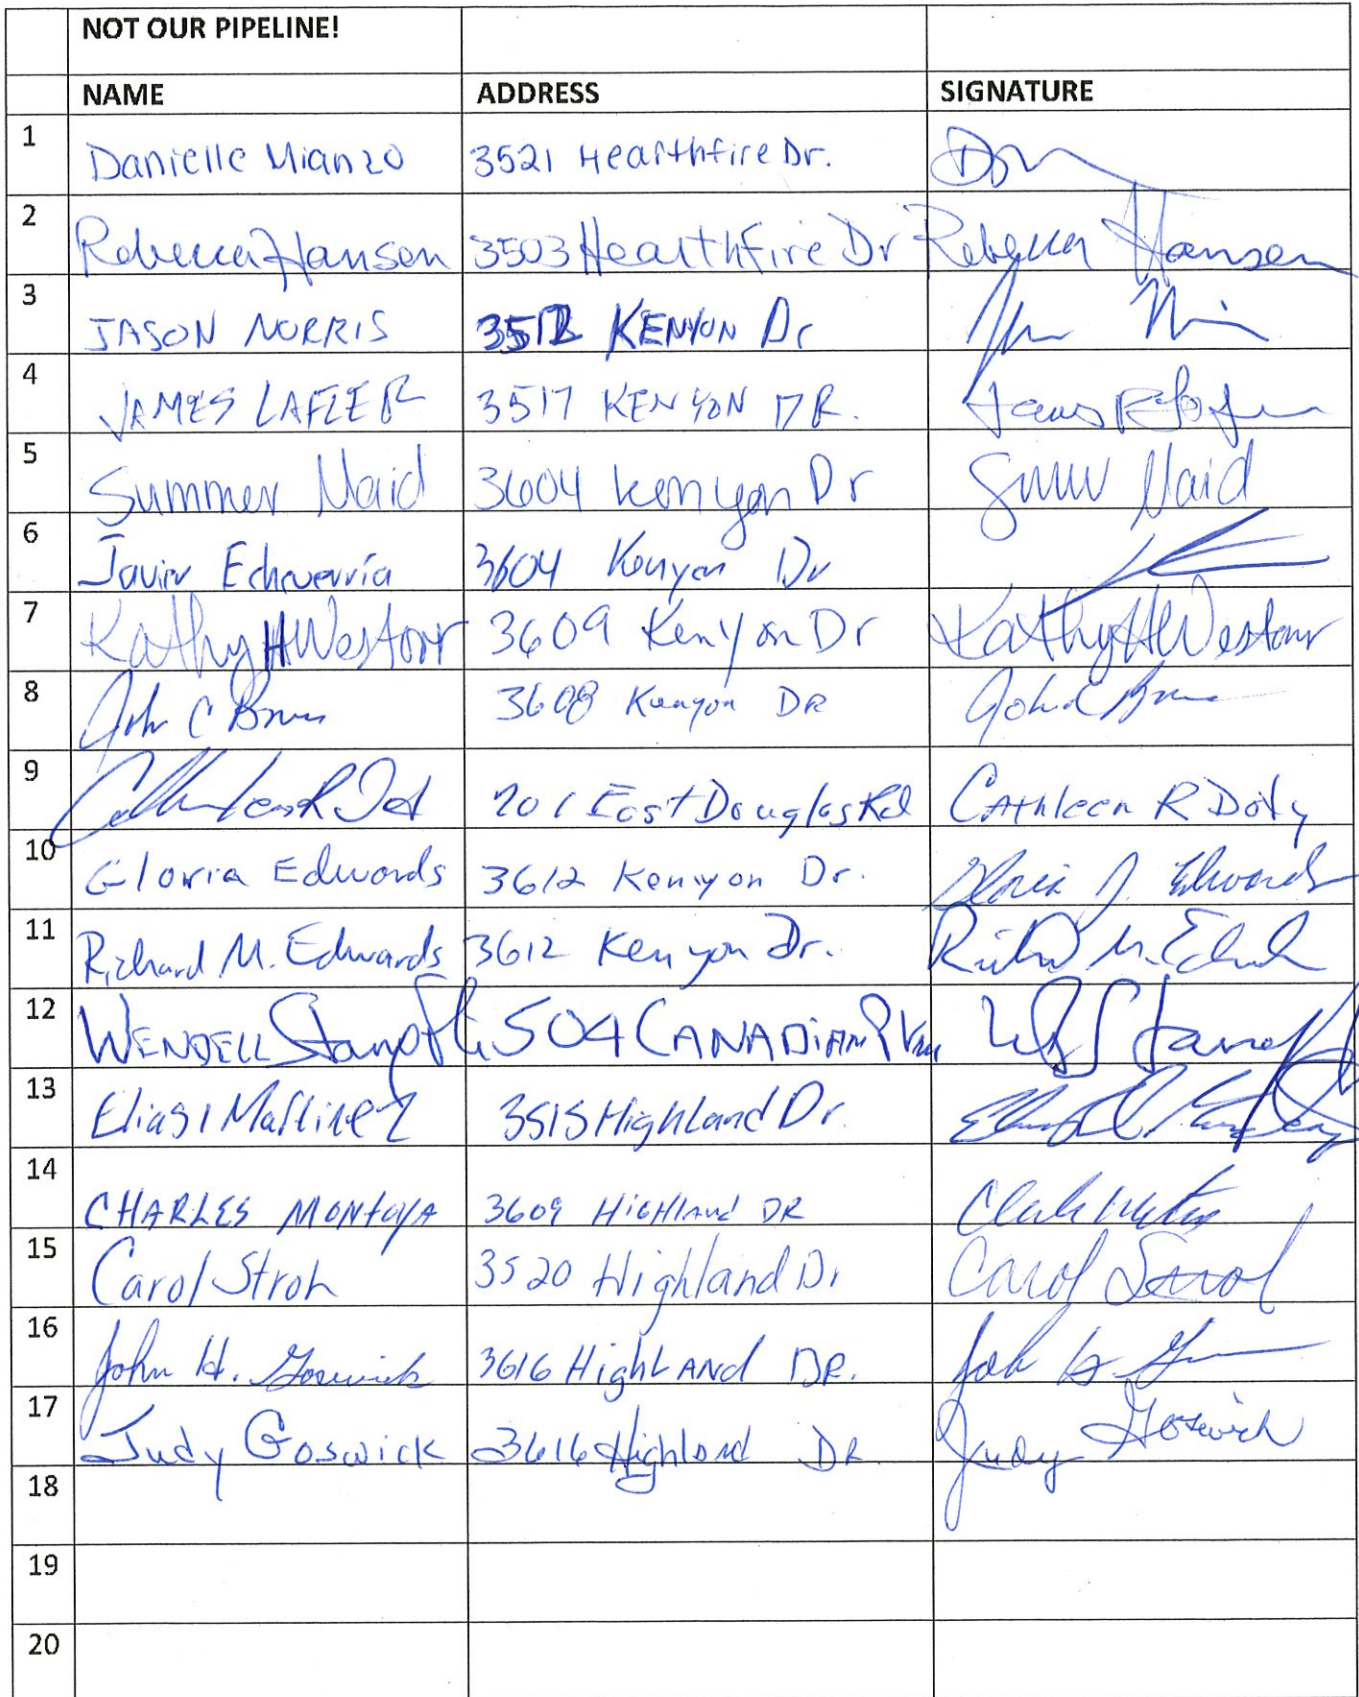 NOT OUR PIPELINE!
NAME ADDRESS SIGNATURE
1 Danielle Mianzo 3521 Hearthfire Dr.
2 Rebecca Hansen 3503 Hearthfire Dr Rebecca Hansen
3 JASON NORRIS 3512 KENYON Dr
4 JAMES LAFLER 3517 KENYON DR.
5 Summer Naid 3604 Kenyon Dr Naid
6 Javier Echeverría 3604 Kenyon Dr
7 Kathy H Westover 3609 Kenyon Dr Kathy H Westover
8 John C 3608 Kenyon DR John C
9 201 East Douglas Rd Cathleen R Doty
10 Gloria Edwards 3612 Kenyon Dr. Gloria J. Edwards
11 Richard M. Edwards 3612 Kenyon Dr. Richard M. Edwards
12 WENDELL Stampfli 504 CANADIAN PKwy
13 Elias Martinez 3515 Highland Dr.
14 CHARLES MONTOYA 3609 HIGHland DR
15 Carol Stroh 3520 Highland Dr Carol Stroh
16 John H. Goswick 3616 HighLAND DR. John H.
17 Judy Goswick 3616 Highland DR Judy Goswick
18
19
20